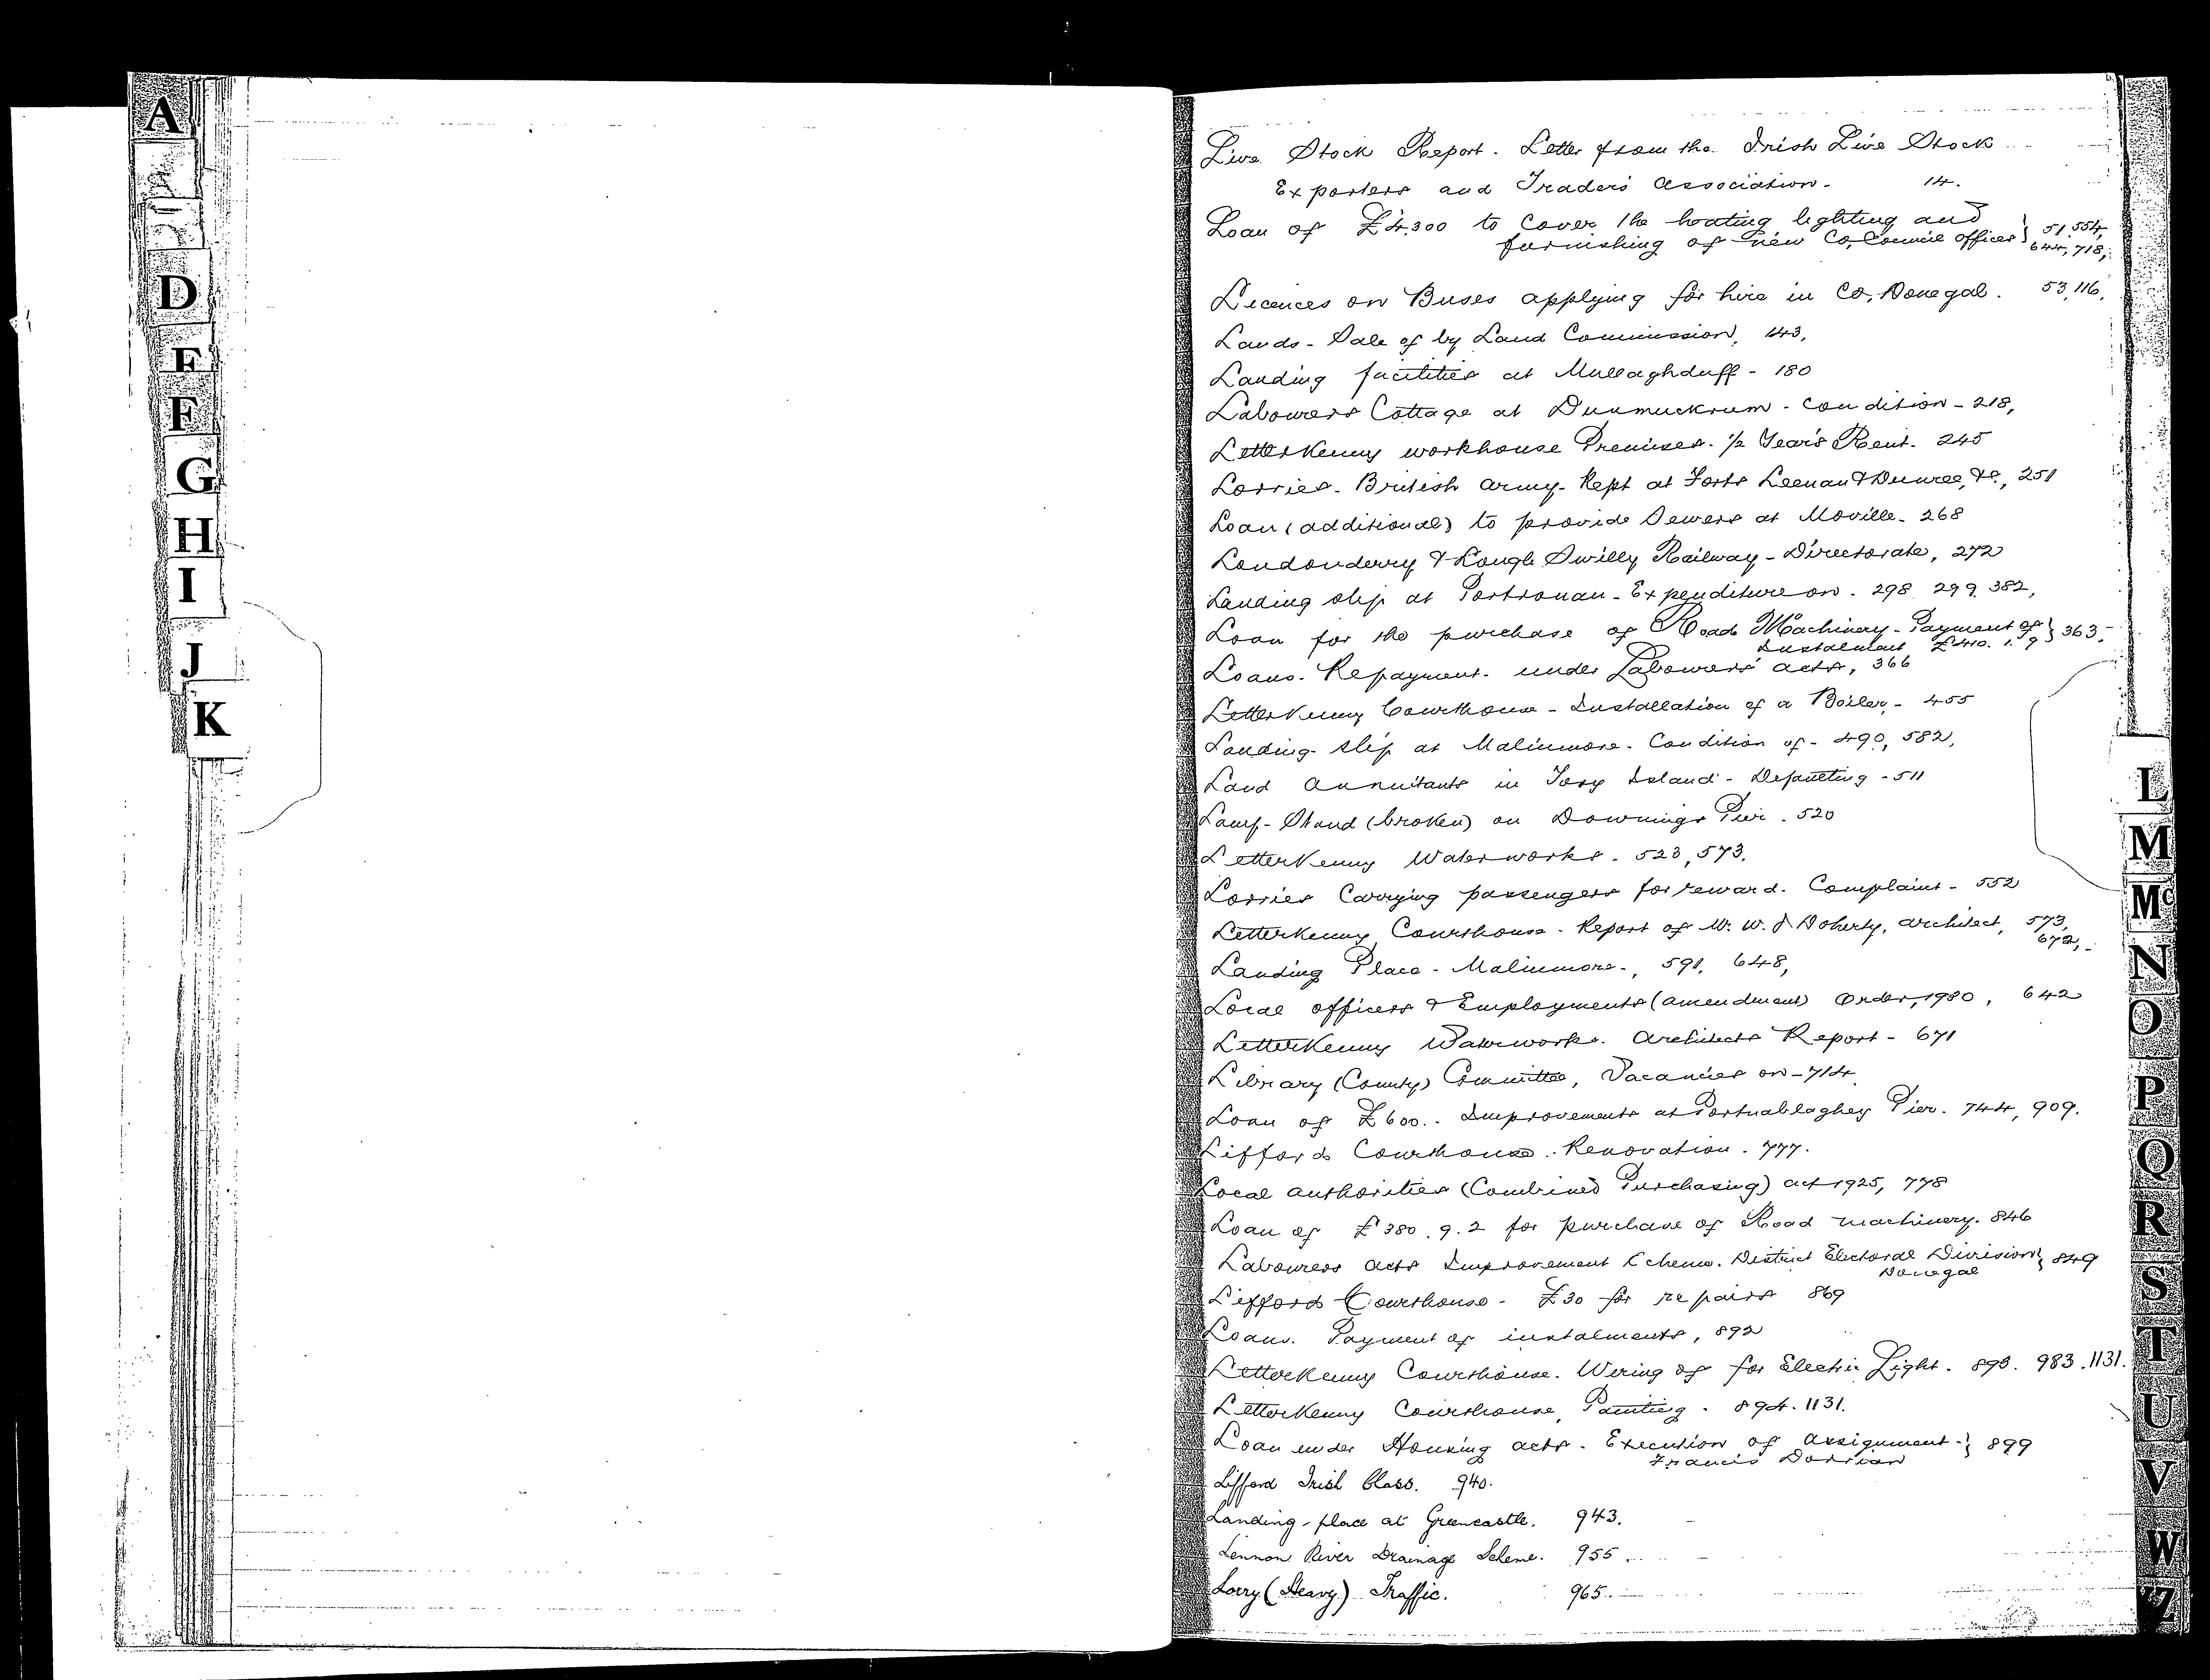 A
D
E
F
G
H
I
J
K
Live Stock Report. Letter from the Irish Live Stock
Exporters and Traders' Association - 14.
Loan of £4,300 to cover the heating lighting and
furnishing of new Co. Council offices } 51, 554,
644, 718,
Licences on Buses applying for hire in Co. Donegal. 53, 116,
Lands - Sale of by Land Commission, 143,
Landing facilities at Mullaghduff - 180
Labourers Cottage at Dunmuckrum - condition - 218,
Letterkenny workhouse Premises. 1/2 Year's Rent. 245
Lorries - British Army - kept at Forts Leenan & Dunree, &c., 251
Loan (additional) to provide Sewers at Moville - 268
Londonderry & Lough Swilly Railway - Directorate, 272
Landing slip at Portronan - Expenditure on - 298 299 382,
Loan for the purchase of Road Machinery - Payment of } 363.
Instalment £410. 1. 9
Loans - Repayment - under Labourers' acts, 366
Letterkenny Courthouse - Installation of a Boiler - 455
Landing - slip at Malinmore - Condition of - 490, 582,
Land Annuitants in Tory Island - - 511
Lamp - Stand (broken) on Downings Pier - 520
Letterkenny Waterworks - 523, 573.
Lorries Carrying passengers for reward. Complaint - 552
Letterkenny Courthouse - Report of Mr. W. J Doherty, architect, 573,
672,
Landing Place - Malinmore -, 591, 648,
Local officers & Employments (amendment) Order, 1930, 642
Letterkenny Waterworks. Architects Report - 671
Library (County) Committee, Vacancies on - 714
Loan of £600.. Improvements at Portnablaghey Pier. 744, 909.
Lifford Courthouse.. Renovation. 777.
Local authorities (Combined Purchasing) act 1925, 778
Loan of £380. 9. 2 for purchase of Road machinery. 846
Labourers acts Improvement Scheme. District Electoral Division } 849
Donegal
Lifford Courthouse - £30 for repairs 869
Loans. Payment of instalments, 892
Letterkenny Courthouse. Wiring of for Electric Light. 893. 983. 1131.
Letterkenny Courthouse, Painting. 894. 1131.
Loan under Housing acts - Execution of assignment - } 899
Francis Dorrian
Lifford Irish Class. 940.
Landing - place at Greencastle. 943.
Lennon River Drainage Scheme. 955
Lorry (Heavy) Traffic. 965
L
M
Mc
N
O
P
Q
R
S
T
U
V
W
YZ